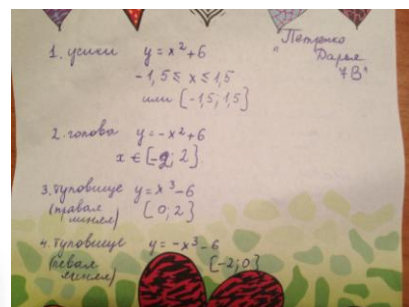 1. усики y = x² + 6
-1,5 ≤ x ≤ 1,5
или [-1,5; 1,5]
"Петренко
Дарья
7В"
2. голова y = -x² + 6
x ∈ [-2; 2]
3. туловище y = x³ - 6
(правая линия) [0; 2]
4. туловище y = -x³ - 6
(левая линия) [-2; 0]